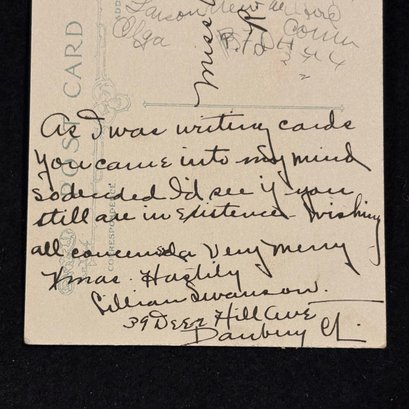 POST CARD
CORRESPONDENCE
Olga
Conn
Miss
As I was writing cards
you came into my mind
so decided I'd see if you
still are in existence. Wishing
all concerned a Very Merry
Xmas. Hastily
Lillian Swanson.
39 Deer Hill Ave
Danbury Ct.